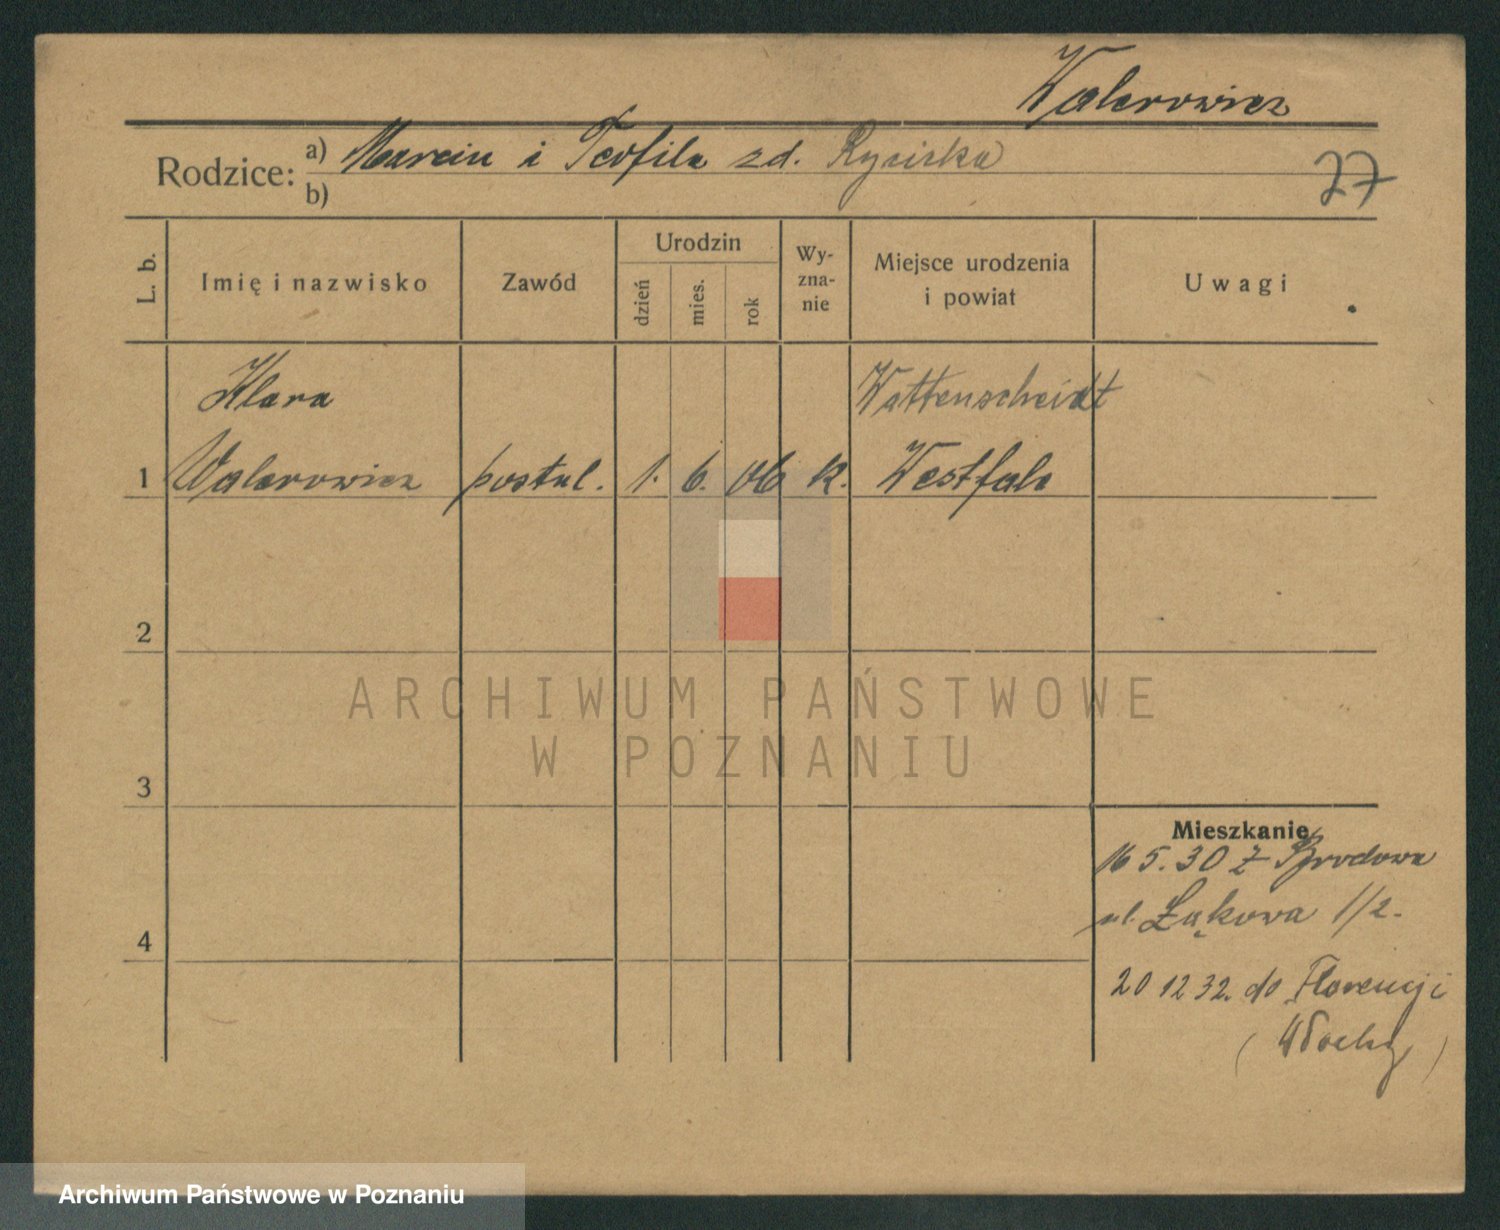 Walerowicz
Rodzice: a) Marcin i Teofila zd.
b)
27
L. b.
Imię i nazwisko
Zawód
Urodzin
dzień
mies.
rok
Wy-
zna-
nie
Miejsce urodzenia
i powiat
Uwagi
Klara
Wattenscheidt
1 Walerowicz postul. 1. 6. 06 k. Westfale
2
ARCHIWUM PAŃSTWOWE
W POZNANIU
3
Mieszkanie
16 5. 30 z
ul. Łąkowa 1/2.
4
20 12 32. do Florencji
(Włochy)
Archiwum Państwowe w Poznaniu